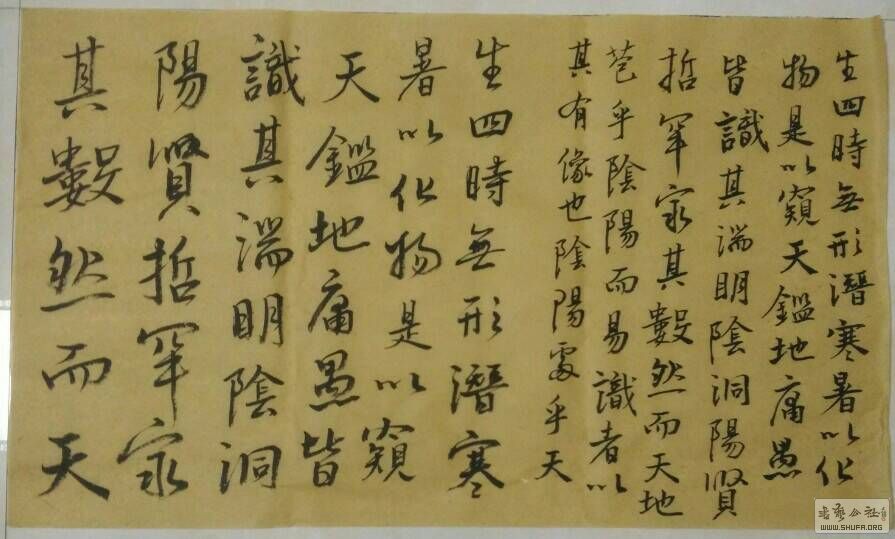 生四時無形潛寒暑以化
物是以窺天鑑地庸愚
皆識其端明陰洞陽賢
哲罕窮其數然而天地
苞乎陰陽而易識者以
其有像也陰陽處乎天
生四時無形潛寒
暑以化物是以窺
天鑑地庸愚皆
識其端明陰洞
陽賢哲罕窮
其數然而天
书艺公社
WWW.SHUFA.ORG